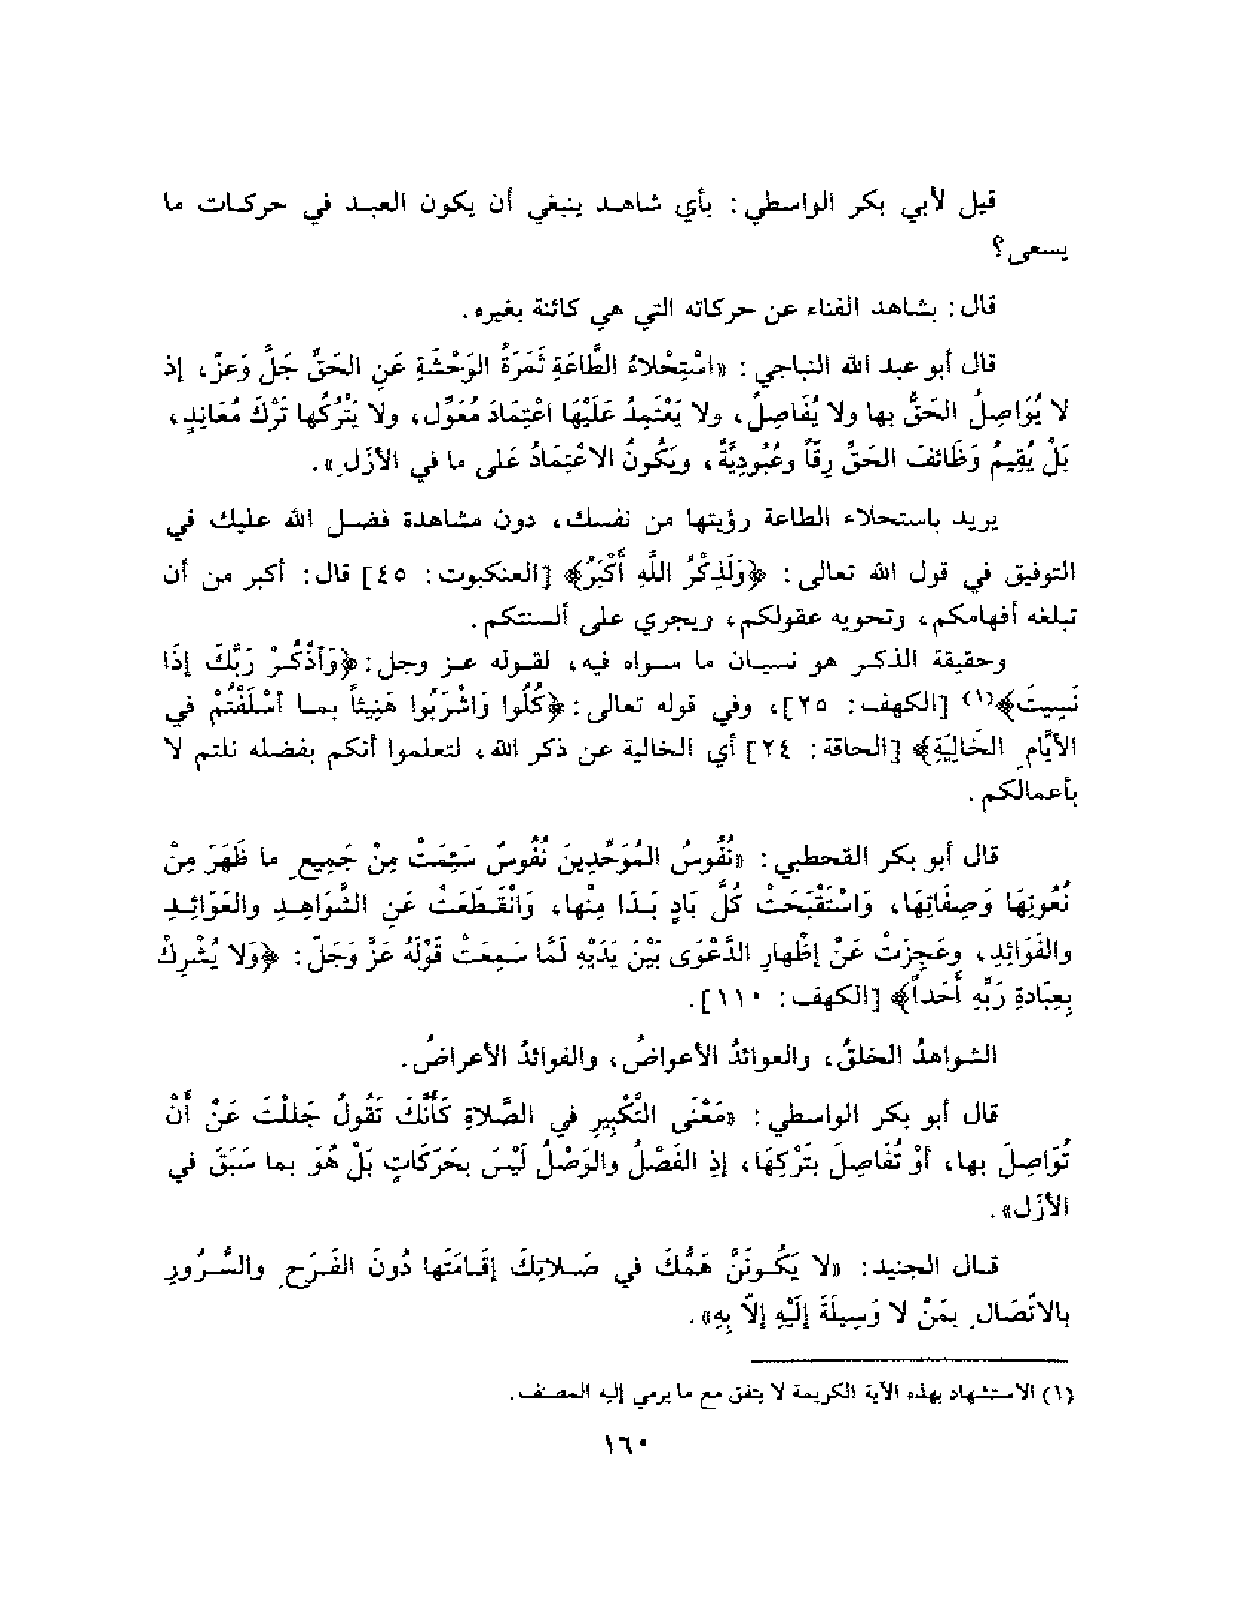 قيل لأبي بكر الواسطي: بأي شاهد ينبغي أن يكون العبد في حركات ما
يسعى؟
قال: بشاهد الفناء عن حركاته التي هي كائنة بغيره.
قال أبو عبد الله النباجي: «اسْتِحْلاءُ الطَّاعَةِ ثَمَرَةُ الوَحْشَةِ عَنِ الحَقِّ جَلَّ وَعزَّ، إذ
لا يُوَاصِلُ الحَقُّ بها ولا يُفَاصِلُ، ولا يَعْتَمِدُ عَلَيْهَا اعْتِمَادَ مُعَوِّل، ولا يَتْرُكُها تَرْكَ مُعَانِدٍ،
بَلْ يُقِيمُ وَظَائفَ الحَقِّ رِقَّاً وعُبُودِيَّةً، ويَكُونُ الاعْتِمَادُ عَلى ما في الأزَلِ».
يريد باستحلاء الطاعة رؤيتها من نفسك، دون مشاهدة فضل الله عليك في
التوفيق في قول الله تعالى: ﴿وَلَذِكْرُ اللَّهِ أَكْبَرُ﴾ [العنكبوت: ٤٥] قال: أكبر من أن
تبلغه أفهامكم، وتحويه عقولكم، ويجري على ألسنتكم.
وحقيقة الذكر هو نسيان ما سواه فيه، لقوله عز وجل: ﴿وَاَذْكُرْ رَبَّكَ إذَا
نَسِيتَ﴾(١) [الكهف: ٢٥]، وفي قوله تعالى: ﴿كُلُوا وَاشْرَبُوا هَنِيئاً بمـا أَسْلَفْتُمْ في
الأيَّامِ الخَالِيَةِ﴾ [الحاقة: ٢٤] أي الخالية عن ذكر الله، لتعلموا أنكم بفضله نلتم لا
بأعمالكم.
قال أبو بكر القحطبي: «نُفُوسُ المُوَحِّدِينَ نُفُوسٌ سَئِمَتْ مِنْ جَمِيعِ ما ظَهَرَ مِنْ
نُعُوتِهَا وَصِفَاتِهَا، وَاسْتَقْبَحَتْ كُلَّ بَادٍ بَدَا مِنْها، وَانْقَطَعَتْ عَنِ الشَّوَاهِدِ والعَوَائِدِ
والفَوَائِدِ، وعَجِزَتْ عَنْ إظْهارِ الدَّعْوَى بَيْنَ يَدَيْهِ لَمَّا سَمِعَتْ قَوْلَهُ عَزَّ وَجَلَّ: ﴿وَلا يُشْرِكْ
بِعِبَادةِ رَبِّهِ أَحَداً﴾ [الكهف: ١١٠].
الشواهدُ الخلقُ، والعوائدُ الأعواضُ، والفوائدُ الأعراضُ.
قال أبو بكر الواسطي: «مَعْنَى التَّكْبِيرِ في الصَّلاةِ كَأَنَّكَ تَقُولُ جَللتَ عَنْ أَنْ
تُوَاصِلَ بها، أوْ تُفَاصِلَ بتَرْكِهَا، إذ الفَصْلُ والوَصْلُ لَيْسَ بحَرَكَاتٍ بَلْ هُوَ بما سَبَقَ في
الأزَل».
قال الجنيد: «لا يَكُونَنَّ هَمُّكَ في صَلاتِكَ إقَامَتَها دُونَ الفَرَحِ والسُّرُورِ
بالاتِّصَالِ بمَنْ لا وَسِيلَةَ إلَيْهِ إلاَّ بِهِ».
(١) الاستشهاد بهذه الآية الكريمة لا يتفق مع ما يرمي إليه المصنف.
١٦٠